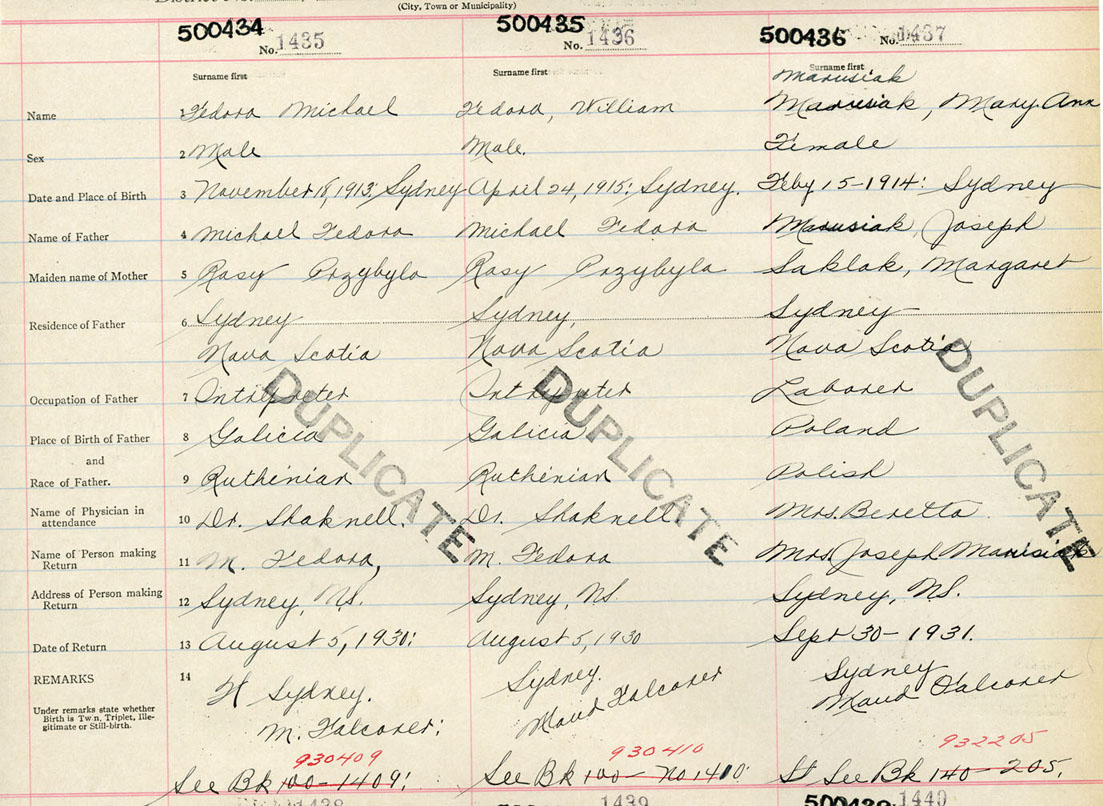 (City, Town or Municipality)
500434 No. 1435
500435 No. 1436
500436 No. 1437
Surname first Surname first Surname first
Marusiak
Name 1 Fedora Michael Fedora, William Marusiak, Mary Ann
Sex 2 Male Male. Female
Date and Place of Birth 3 November 18, 1913: Sydney April 24, 1915: Sydney. Feby 15-1914: Sydney
Name of Father 4 Michael Fedora Michael Fedora Marusiak, Joseph
Maiden name of Mother 5 Rosy Przybylo Rosy Przybyla Saklak, Margaret
Residence of Father 6 Sydney Sydney, Sydney
Nova Scotia Nova Scotia Nova Scotia
Occupation of Father 7 Interpreter Interpreter Laborer
Place of Birth of Father 8 Galicia Galicia Poland
and
Race of Father. 9 Ruthenian Ruthenian Polish
Name of Physician in attendance 10 Dr. Shaknell. Dr. Shaknell Mrs. Beretta
Name of Person making Return 11 M. Fedora, M. Fedora Mrs. Joseph Marusiak
Address of Person making Return 12 Sydney, N.S. Sydney, N.S. Sydney, N.S.
Date of Return 13 August 5, 1930: August 5, 1930 Sept 30-1931.
REMARKS 14 Sydney. Sydney. Sydney
Under remarks state whether Birth is Twin, Triplet, Illegitimate or Still-birth.
M. Falconer: Maud Falconer Maud Falconer
930409 930410 932205
See Bk 100-1409: See Bk 100-No 1410 St See Bk 140-205.
DUPLICATE DUPLICATE DUPLICATE
1438 1439 1440